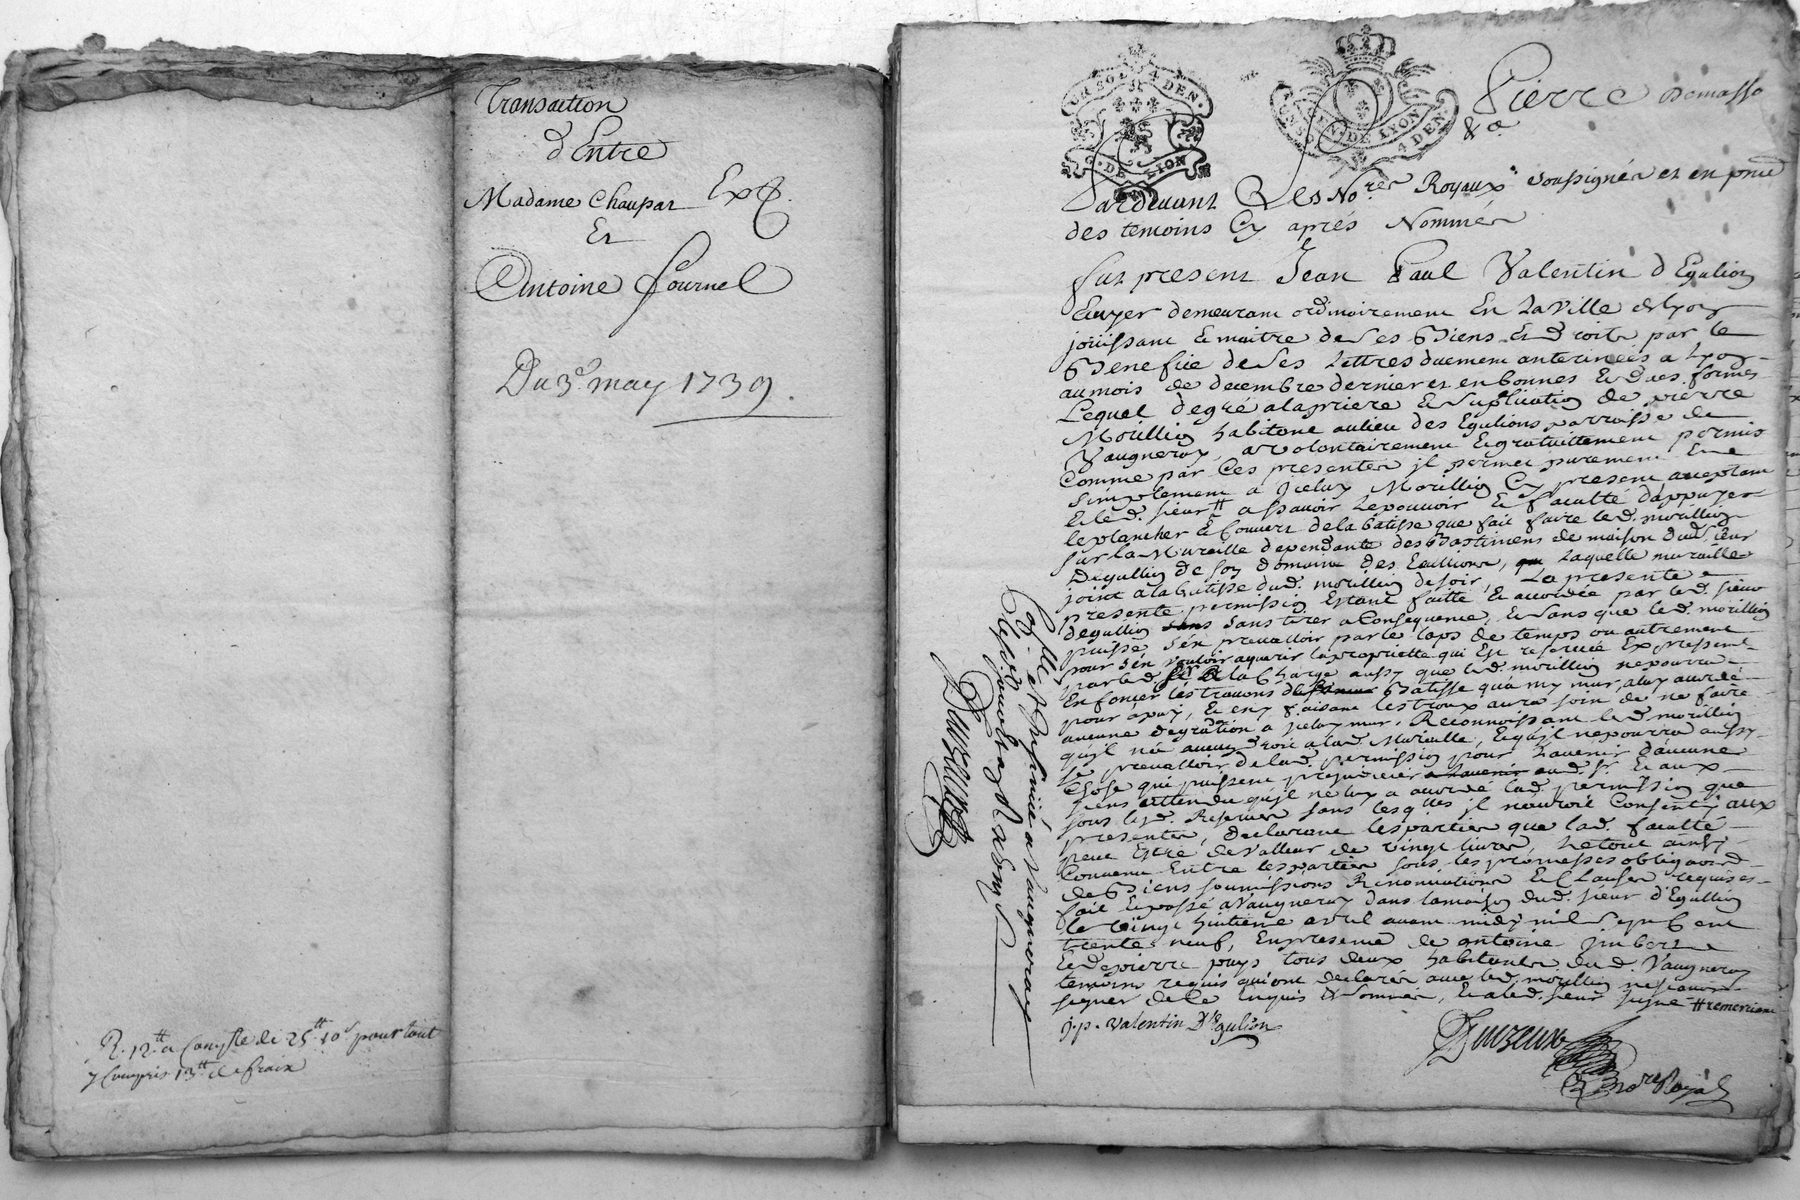 Transaction
d'Entre
Madame Chaupat
Et
Antoine fournel
Du 3e. may 1739.
R. 12tt a Compte de 25tt 10s pour tout
y Compris 13tt de fraix
UN SOL 4 DEN.
G. DE LYON
GEN. DE LYON
UN SOL 4 DEN.
Pierre
&a
Pardevant Les Nores Royaux soussignés et en
des temoins Cy aprés Nommés
fut present Jean Paul Valentin d'Egulion
Ecuyer demeurant ordinairement En La Ville de Lyon
joüissant Et maitre de Ses Biens Et Droits par le
Benefice de Ses Lettres duement anterinées a Lyon
au mois de decembre dernier et en bonnes Et Dues formes
Lequel de gré a la priere Et Suplication de pierre
Morillion habitant au lieu des Egulions parroisse de
Vaugneray, a volontairement Et gratuittement permis
Comme par Ces presentes jl permet purement Et
Simplement a jceluy Morillion Cy present acceptant
Et led. sieur tt a sçavoir Le pouvoir Et faculté d'appuyer
le plancher Et Couvert de la Batisse que fait faire led. morillion
sur la Muraille dependante des Bastimens de maison dud. sieur
Degullion de son domaine des Egullions, laquelle muraille
joint a la batisse dud. morillion de soir, La presente
presente permission Estant faitte Et accordée par led. sieur
degullion sans tirer a Consequence, Et Sans que led. morillion
puisse s'en prevalloir par le laps de temps ou autrement
pour s'en vouloir aquerir la proprieté qui Est reservée Expressemt.
par led. sr. a la Charge aussy que led. morillion ne pourra
Enfoncer les travons Batisse qu'a my mur, a luy accordé
pour apuy, Et en y faisant les troux aura soin de ne faire
aucune degradation a jceluy mur, Reconnoissant led. morillion
qu'jl n'a aucun droit a lad. Muraille, Et qu'jl ne pourra aussy
se prevalloir de lad. permission pour L'avenir d'aucune
Chose qui puissent prejudicier aud. sr. Et aux
siens attendu qu'jl ne luy a accordé lad. permission que
sous lesd. Reserves sans lesqlles jl n'auroit Consenty aux
presentes, declarant les parties que lad. faculté
peut Estre de valleur de vingt livres, Le tout ainsy
Convenu Entre les parties sous les promesses obligaons.
de Biens soumissions Renonciations Et Clauses requises
fait Et passé a Vaugneray dans la maison dud. sieur d'Egullion
le vingt huitieme avril avant midy mil Sept Cent
trente neuf, En presence de antoine jmbert
Et de pierre pays tous deux habitants dud. Vaugneray
temoins requis qui ont declarés avec led. morillion ne scavoir
signer de ce Enquis Et Sommés, Et a led. sieur signé tt remerciant
j. p. Valentin D'Egulion
nore Royal
et jnsinué a Vaugneray